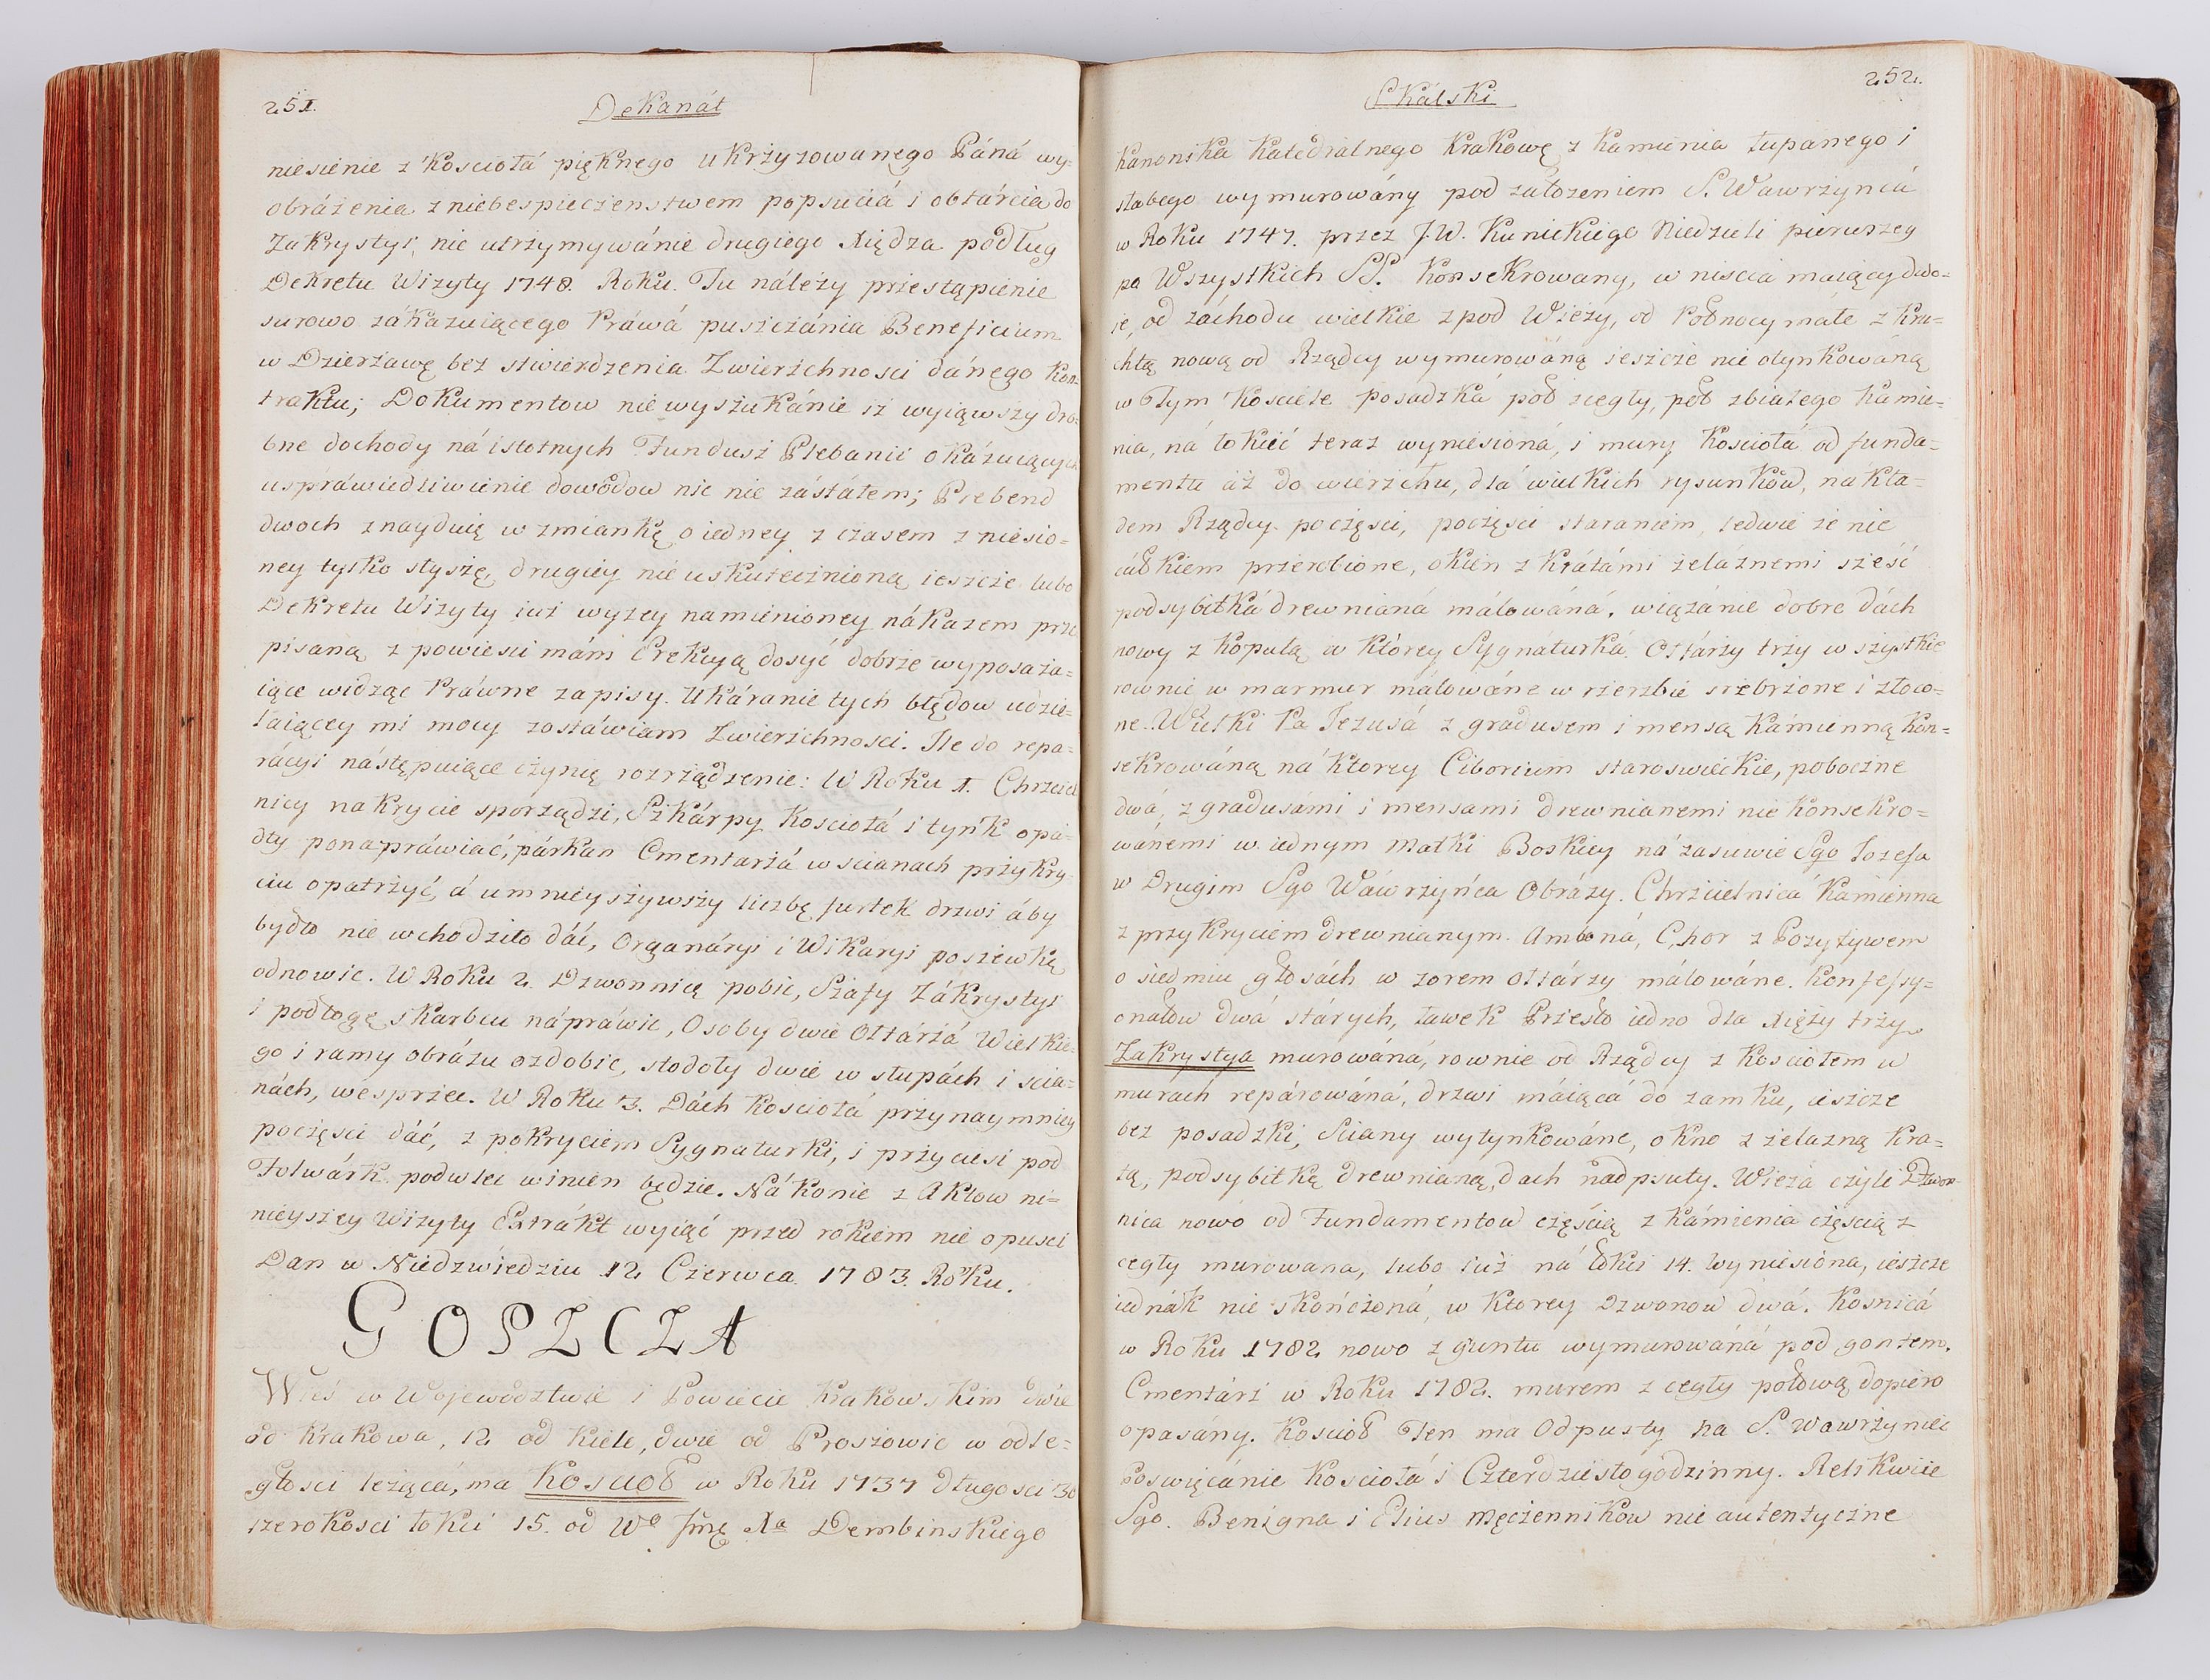 251.
Dekanát
niesienie z Kosciołá pięknego ukrzyzowanego Páná wy=
obrázenia z niebespieczenstwem popsuciá i obtárcia do
Zakrystyi, nie utrzymywánie drugiego Xiędza podług
Dekretu Wizyty 1748. Roku. Tu nálezy przestąpienie
surowo zákazuiącego Práwá puszczánia Beneficium
w Dzierzawę bez stwierdzenia Zwierzchnosci dánego Kon=
traktu; Dokumentow nie wyszukánie iz wyiąwszy dro=
bne dochody ná istotnych Fundusz Plebanii okázuiących
uspráwiedliwienie dowodow nic nie zástałem; Prebend
dwoch znayduię w zmiankę o iedney z czasem zniesio=
ney tylko słyszę, drugiey nie uskutecznioną ieszcze lubo
Dekretu Wizyty iuz wyzey namienioney nákazem prze
pisaną z powiesci mám Erekcyą dosyć dobrze wyposaza=
iące widząc Práwne zapisy. Ukáranie tych błędow udzie=
laiącey mi mocy zostáwiam Zwierzchnosci. Ile do repa=
rácyi nástępuiące czynię rozrządzenie: W Roku 1. Chrzciel
nicy nakrycie sporządzi, Szkárpy Kosciołá i tynk opa=
dły ponapráwiáć, párkan Cmentarzá w scianach przykry=
ciu opatrzyć, á umnieyszywszy liczbę furtek drzwi áby
bydło nie wchodziło dáć, Organáryi i Wikaryi poszewkę
odnowic. W Roku 2. Dzwonnicę pobic, Szafy Zákrystyi
i podłogę skarbcu nápráwic, Osoby dwie Ołtárzá Wielkie=
go i ramy obrázu ozdobic, stodoły dwie w słupách i scia=
nách, wesprzec. W Roku 3. Dách Kosciołá przynaymniey
poczęsci dáć, z pokryciem Sygnaturki, i przyciesi pod
Folwárk podwlec winien będzie. Ná konie z Aktow ni=
nieyszey Wizyty Extrákt wyiąć przed rokiem nie opusci
Dan w Niedzwiedziu 12 Czerwca 1783. Roku.
GOSZCZA
Wieś w Wojewodztwie i Powiecie Krakowskim dwie
od Krakowa, 12 od Kielc, dwie od Proszowic w odle=
głosci leząca, ma Koscioł w Roku 1737 długosci 30
szerokosci łokci 15. od Wo Jmę Xa Dembinskiego
Skálski
252.
Kanonika Katedralnego Krakowę z Kamienia łupanego i
słabego wymurowány pod załozeniem S. Wawrzyncá
w Roku 1747. przez J. W. Kunickiego Niedzieli pierwszey
po Wszystkich SS. Konsekrowany, w niscia maiący dwo=
ie, od záchodu wielkie zpod Wiezy, od Połnocy małe z kru=
chtą nową od Rządcy wymurowáną ieszcze nie otynkowáną
w Tym Kosciele posadzká poł cegły, poł zbiałego kamie=
nia, ná łokieć teraz wyniesioná, i mury Kosciołá od funda=
mentu áż do wierzchu, dlá wielkich rysunkow, nakła=
dem Rządcy poczęsci, poczęsci staraniem, ledwie ze nie
całkiem przerobione, okien z krátámi zelaznemi sześć
podsybitká drewnianá málowáná, wiązánie dobre dách
nowy z kopułą w ktorey Sygnáturká. Ołtárzy trzy wszystkie
rownie w marmur málowáne w rzezbie srebrzone i złoco=
ne. Wielki Pa Jezusá z gradusem i mensą kámienną Kon=
sekrowáną ná ktorey Ciborium staroswieckie, poboczne
dwá, z gradusámi i mensami drewnianemi nie konsekro=
wánemi w iednym Matki Boskiey ná zasuwie Sgo Jozefa
w Drugim Sgo Wáwrzyńca Obrázy. Chrzcielnicá Kamienna
z przykryciem drewnianym. Amboná, Chor z Pozytywem
o siedmiu głosách w zorem ołtárzy málowáne. Konfessy=
onałow dwá stárych, ławek Przesło iedno dla Xięzy trzy
Zakrystya murowáná, rownie od Rządcy z Kosciołem w
murach repárowáná, drzwi máiącá do zamku, ieszcze
bez posadzki, Sciany wytynkowáne, okno z zelazną Kra=
tą, podsybitkę drewnianą, dach nadpsuty. Wieza czyli Dzwon=
nica nowo od Fundamentow częścią z kámienia częscią z
cegły murowana, lubo iuż ná łokci 14. wyniesiona, ieszcze
iednák nie skończoná, w ktorey Dzwonow dwá. Kosnicá
w Roku 1782 nowo z gruntu wymurowáná pod gontem.
Cmentárz w Roku 1782. murem z cegły połową dopiero
opasány. Koscioł Ten ma Odpusty na S. Wawrzyniec
Poswięcánie Kosciołá i Czterdziestogodzinny. Relikwiie
Sgo. Benigna i Elius Męczennikow nie autentyczne